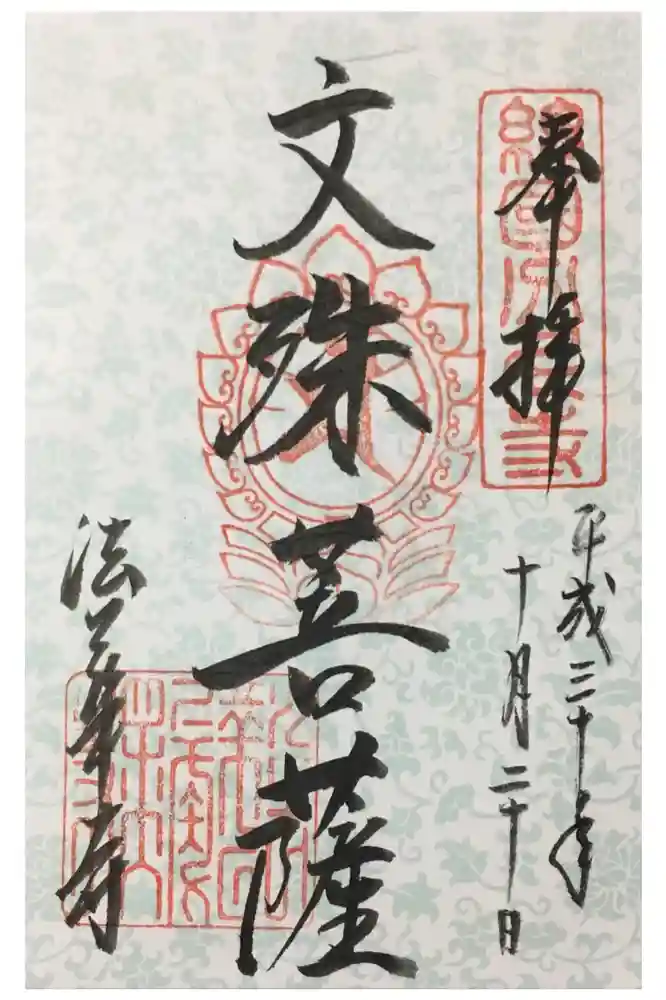 奉拝
平成三十年
十月二十日
文殊菩薩
法華寺